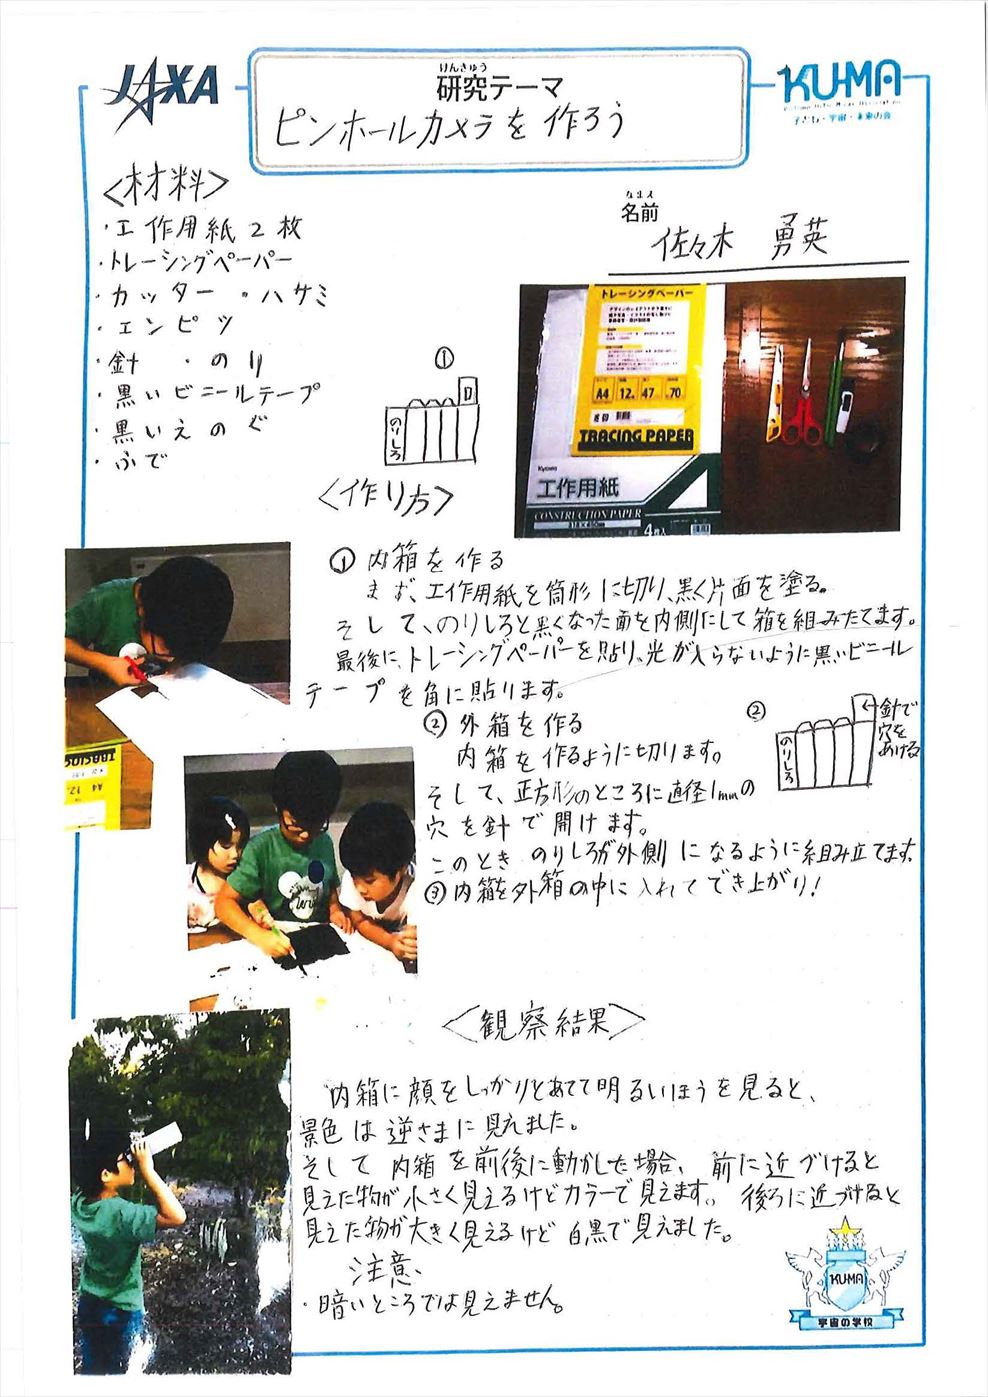 JAXA
けんきゅう
研究テーマ
ピンホールカメラを作ろう
KU-MA
子ども・宇宙・未来の会
なまえ
名前
佐々木 勇英
<材料>
・工作用紙2枚
・トレーシングペーパー
・カッター ・ハサミ
・エンピツ
・針 ・のり
・黒いビニールテープ
・黒いえのぐ
・ふで
①
のりしろ
トレーシングペーパー
A4 12 47 70
TRACING PAPER
Kyowa
工作用紙
CONSTRUCTION PAPER
4枚入
<作り方>
① 内箱を作る
まず、工作用紙を筒形に切り、黒く片面を塗る。
そして、のりしろと黒くなった面を内側にして箱を組みたてます。
最後に、トレーシングペーパーを貼り、光が入らないように黒いビニール
テープを角に貼ります。
② 外箱を作る
内箱を作るように切ります。
そして、正方形のところに直径1mmの
穴を針で開けます。
このとき のりしろが外側になるように組み立てます。
③内箱を外箱の中に入れてでき上がり!
②
のりしろ
←針で
穴を
あける
TRACING
A4 12
<観察結果>
内箱に顔をしっかりとあてて明るいほうを見ると、
景色は逆さまに見れました。
そして内箱を前後に動かした場合、前に近づけると
見えた物が小さく見えるけどカラーで見えます。後ろに近づけると
見えた物が大きく見えるけど白黒で見えました。
注意
・暗いところでは見えません。
KUMA
宇宙の学校